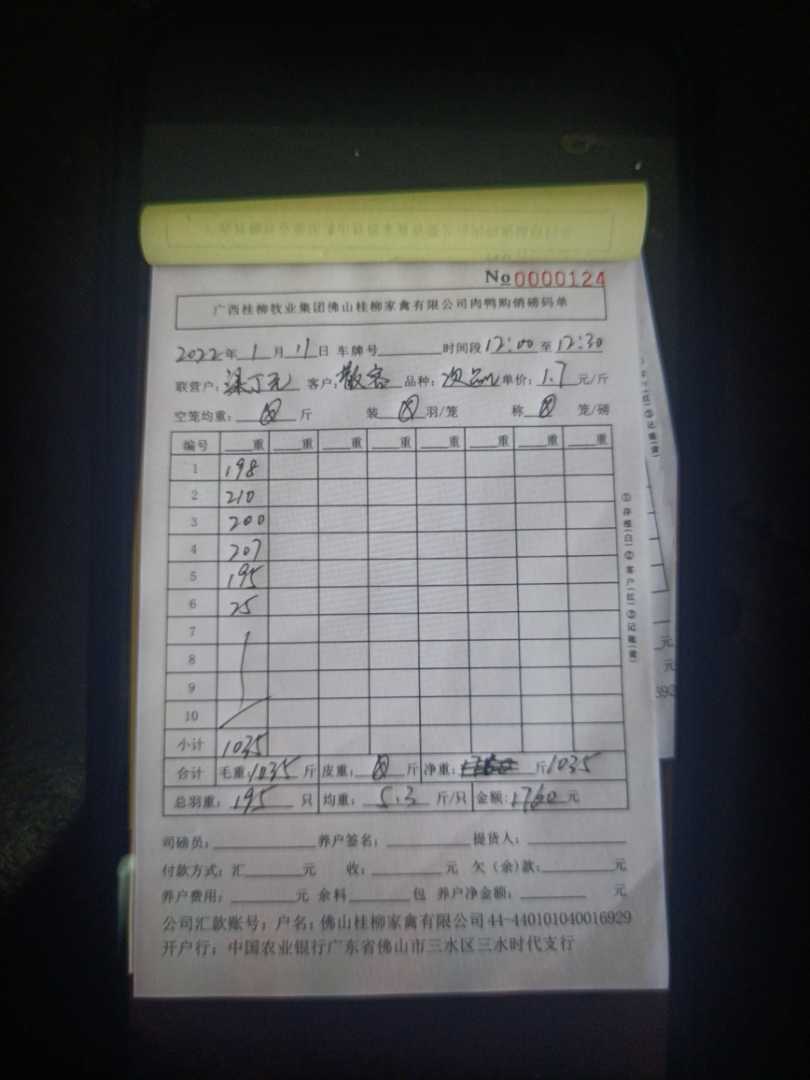 No 0000124
广西桂柳牧业集团佛山桂柳家禽有限公司肉鸭购销磅码单
2022年1月11日 车牌号 时间段12:00至12:30
联营户: 客户:散客 品种:次品 单价:1.7元/斤
空笼均重: 斤 装 羽/笼 称 笼/磅
编号 重 重 重 重 重 重 重 重
1 198
2 210
3 200
4 207
5 195
6 25
7
8
9
10
小计 1035
合计 毛重:1035斤 皮重: 斤 净重: 斤1035
总羽重:195只 均重:5.3斤/只 金额:1760元
司磅员: 养户签名: 提货人:
付款方式:汇 元 收: 元 欠(余)款: 元
养户费用: 元 余料 包 养户净金额: 元
公司汇款账号:户名:佛山桂柳家禽有限公司44-440101040016929
开户行:中国农业银行广东省佛山市三水区三水时代支行
①存根(白)②客户(红)③记账(黄)